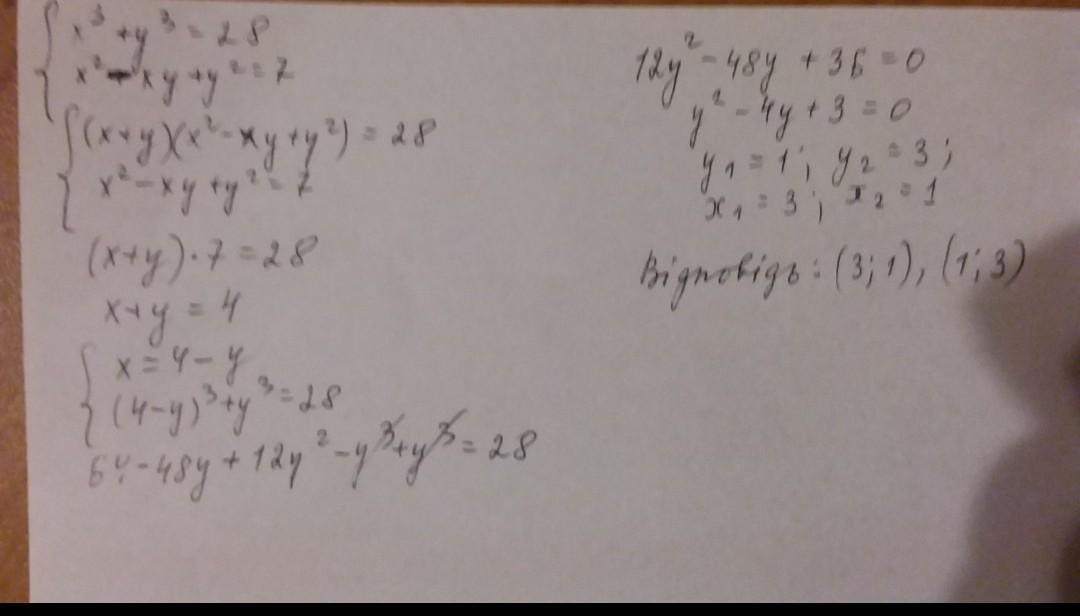 x³ + y³ = 28
x² - xy + y² = 7
(x+y)(x² - xy + y²) = 28
x² - xy + y² = 7
(x+y) · 7 = 28
x + y = 4
x = 4 - y
(4-y)³ + y³ = 28
64 - 48y + 12y² - y³ + y³ = 28
12y² - 48y + 36 = 0
y² - 4y + 3 = 0
y₁ = 1; y₂ = 3;
x₁ = 3; x₂ = 1
Відповідь: (3; 1), (1; 3)